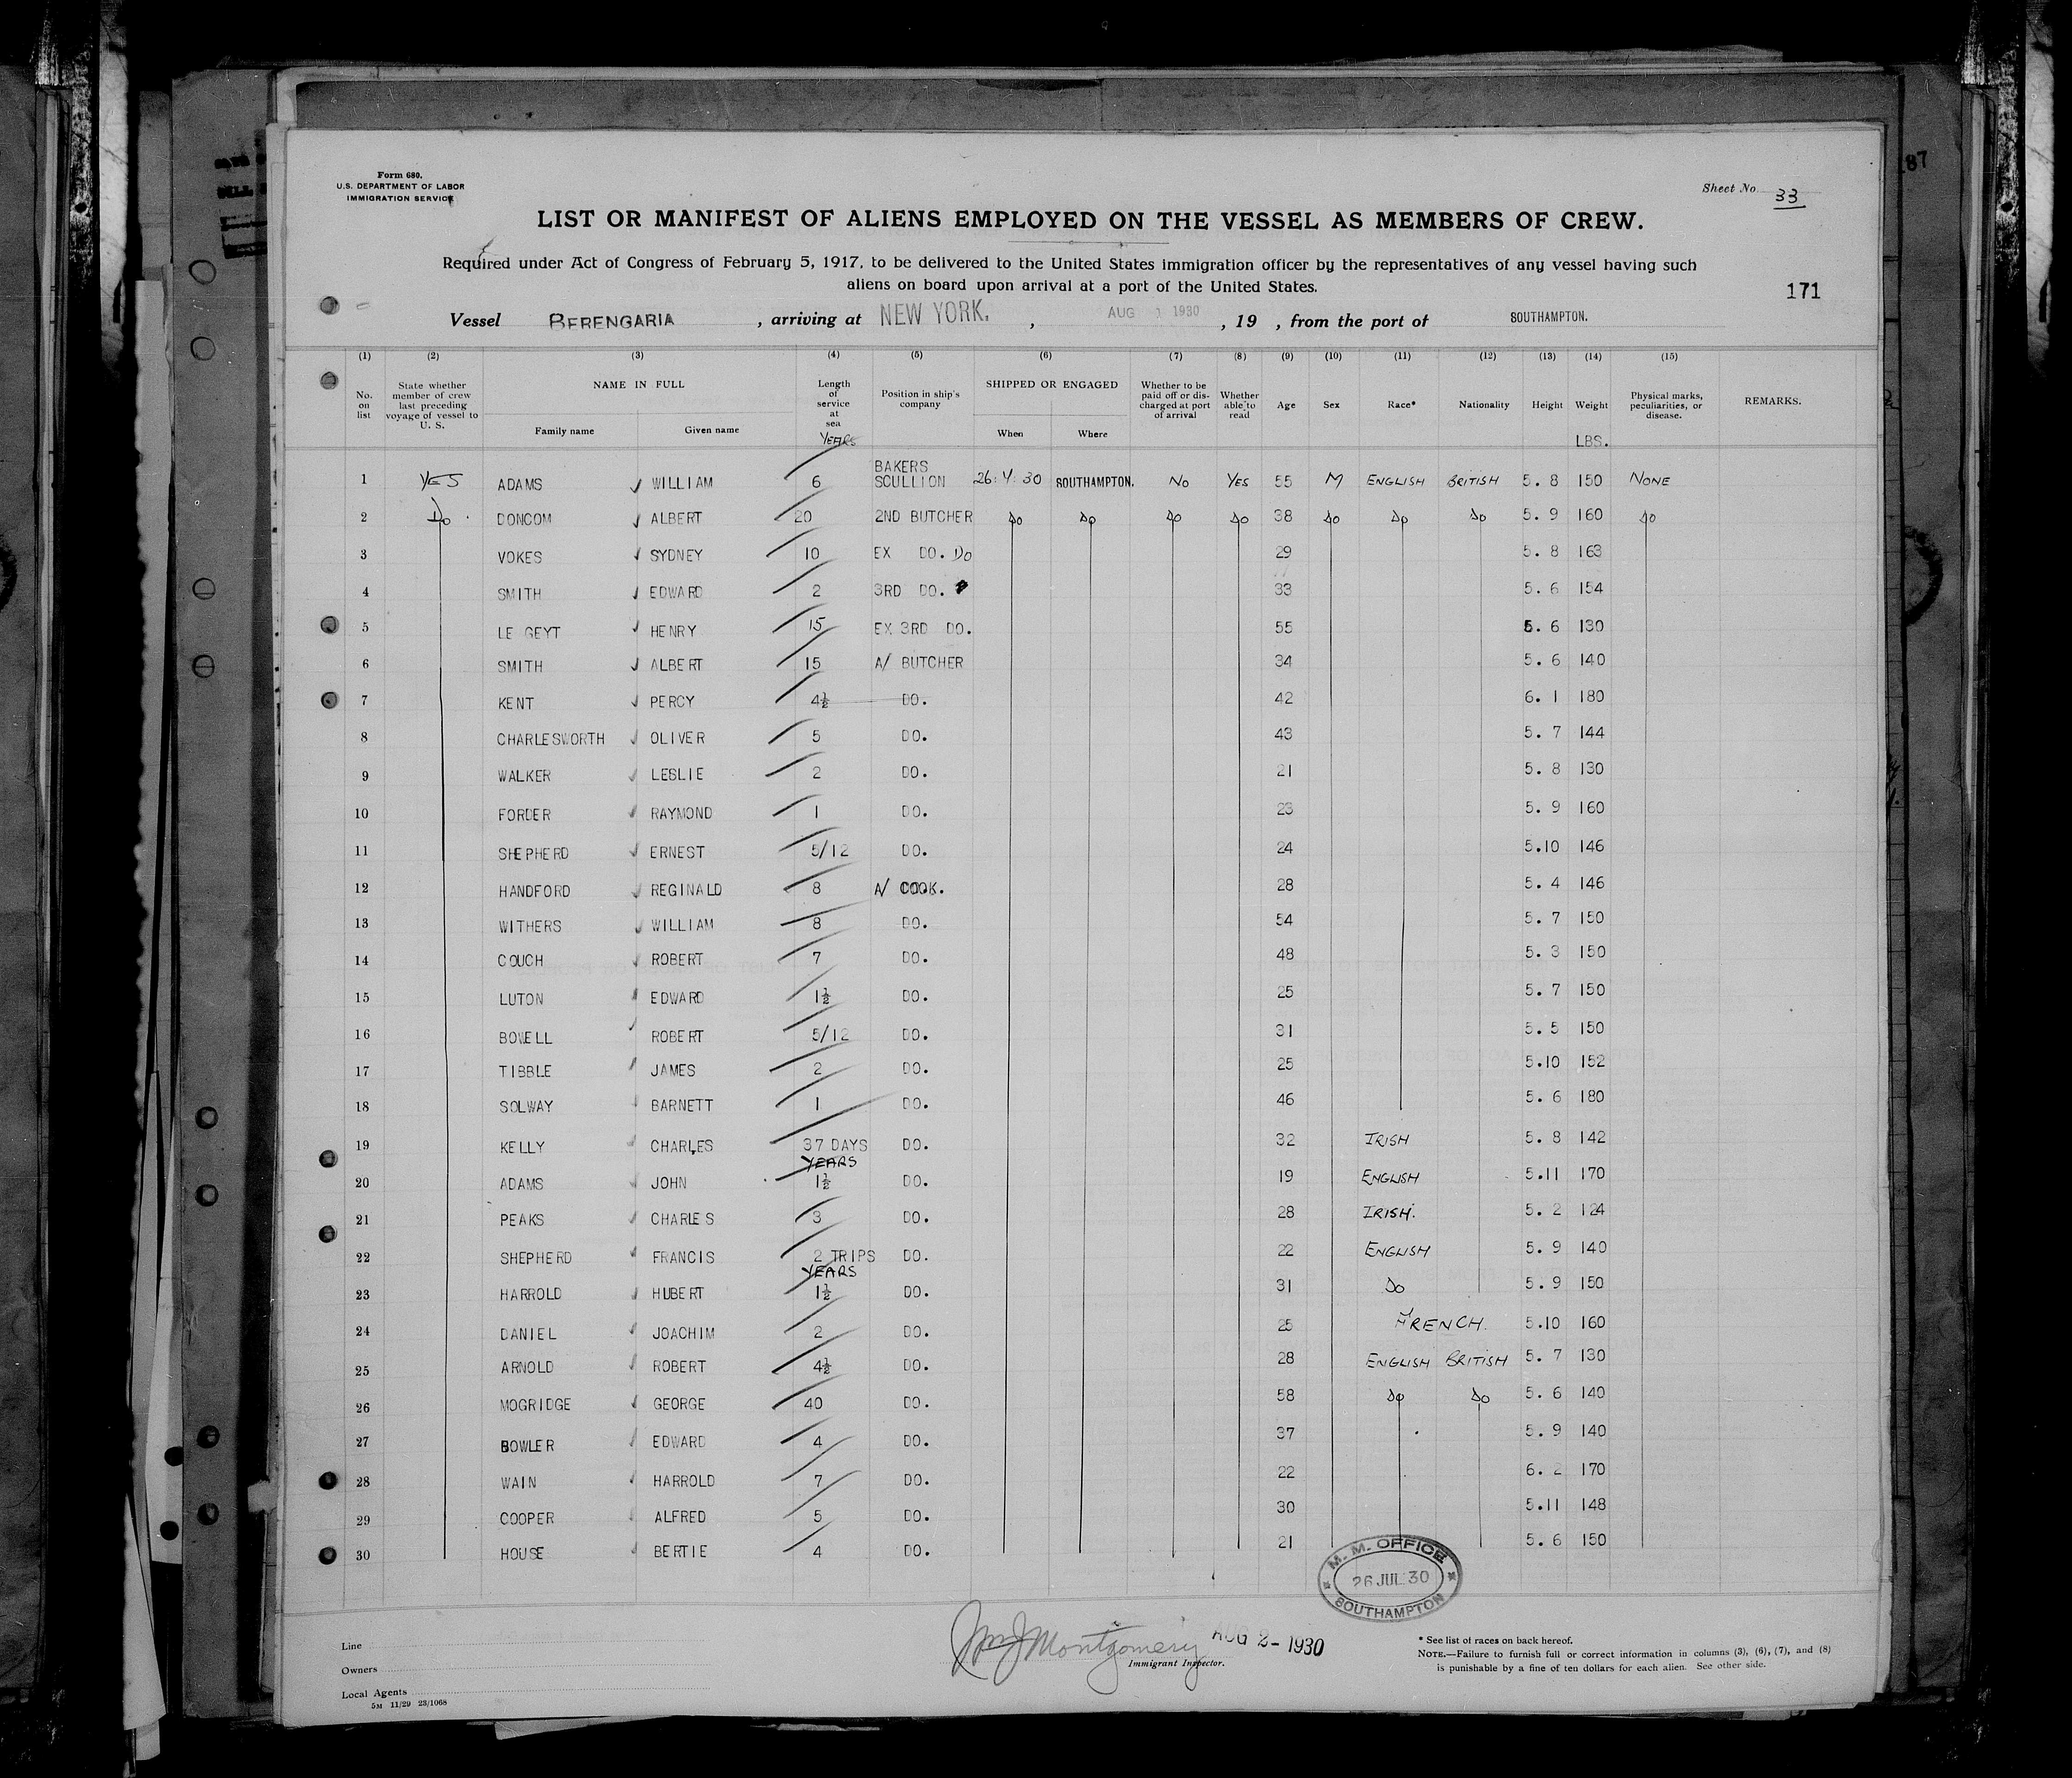 Form 680.
U.S. DEPARTMENT OF LABOR
IMMIGRATION SERVICE
Sheet No. 33
LIST OR MANIFEST OF ALIENS EMPLOYED ON THE VESSEL AS MEMBERS OF CREW.
Required under Act of Congress of February 5, 1917, to be delivered to the United States immigration officer by the representatives of any vessel having such
aliens on board upon arrival at a port of the United States.
171
Vessel BERENGARIA, arriving at NEW YORK., AUG 1930, 19 , from the port of SOUTHAMPTON.
(1) (2) (3) (4) (5) (6) (7) (8) (9) (10) (11) (12) (13) (14) (15)
No. on list
State whether member of crew last preceding voyage of vessel to U. S.
NAME IN FULL
Family name
Given name
Length of service at sea
YEARS
Position in ship's company
SHIPPED OR ENGAGED
When
Where
Whether to be paid off or discharged at port of arrival
Whether able to read
Age
Sex
Race*
Nationality
Height
Weight
LBS.
Physical marks, peculiarities, or disease.
REMARKS.
1 YES ADAMS WILLIAM 6 BAKERS SCULLION 26.4.30 SOUTHAMPTON. NO YES 55 M ENGLISH BRITISH 5. 8 150 NONE
2 Do DONCOM ALBERT 20 2ND BUTCHER Do Do Do Do 38 Do Do Do 5. 9 160 Do
3 VOKES SYDNEY 10 EX DO. Do 29 5. 8 163
4 SMITH EDWARD 2 3RD DO. 33 5. 6 154
5 LE GEYT HENRY 15 EX 3RD DO. 55 5. 6 130
6 SMITH ALBERT 15 A/ BUTCHER 34 5. 6 140
7 KENT PERCY 4½ DO. 42 6. 1 180
8 CHARLESWORTH OLIVER 5 DO. 43 5. 7 144
9 WALKER LESLIE 2 DO. 21 5. 8 130
10 FORDER RAYMOND 1 DO. 23 5. 9 160
11 SHEPHERD ERNEST 5/12 DO. 24 5.10 146
12 HANDFORD REGINALD 8 A/ COOK. 28 5. 4 146
13 WITHERS WILLIAM 8 DO. 54 5. 7 150
14 COUCH ROBERT 7 DO. 48 5. 3 150
15 LUTON EDWARD 1½ DO. 25 5. 7 150
16 BOWELL ROBERT 5/12 DO. 31 5. 5 150
17 TIBBLE JAMES 2 DO. 25 5.10 152
18 SOLWAY BARNETT 1 DO. 46 5. 6 180
19 KELLY CHARLES 37 DAYS DO. 32 IRISH 5. 8 142
20 ADAMS JOHN YEARS 1½ DO. 19 ENGLISH 5.11 170
21 PEAKS CHARLES 3 DO. 28 IRISH. 5. 2 124
22 SHEPHERD FRANCIS 2 TRIPS DO. 22 ENGLISH 5. 9 140
23 HARROLD HUBERT YEARS 1½ DO. 31 Do 5. 9 150
24 DANIEL JOACHIM 2 DO. 25 FRENCH. 5.10 160
25 ARNOLD ROBERT 4½ DO. 28 ENGLISH BRITISH 5. 7 130
26 MOGRIDGE GEORGE 40 DO. 58 Do Do 5. 6 140
27 BOWLER EDWARD 4 DO. 37 5. 9 140
28 WAIN HARROLD 7 DO. 22 6. 2 170
29 COOPER ALFRED 5 DO. 30 5.11 148
30 HOUSE BERTIE 4 DO. 21 5. 6 150
M. M. OFFICE
26 JUL 30
SOUTHAMPTON
Line
Owners
Local Agents
5M 11/29 23/1068
Wm J Montgomery AUG 2 - 1930
Immigrant Inspector.
* See list of races on back hereof.
NOTE.—Failure to furnish full or correct information in columns (3), (6), (7), and (8)
is punishable by a fine of ten dollars for each alien. See other side.
87